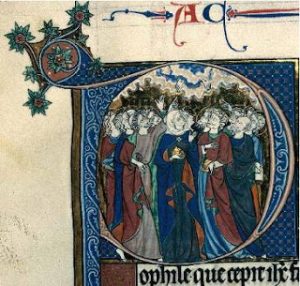 AC
ophile que cepit ihc